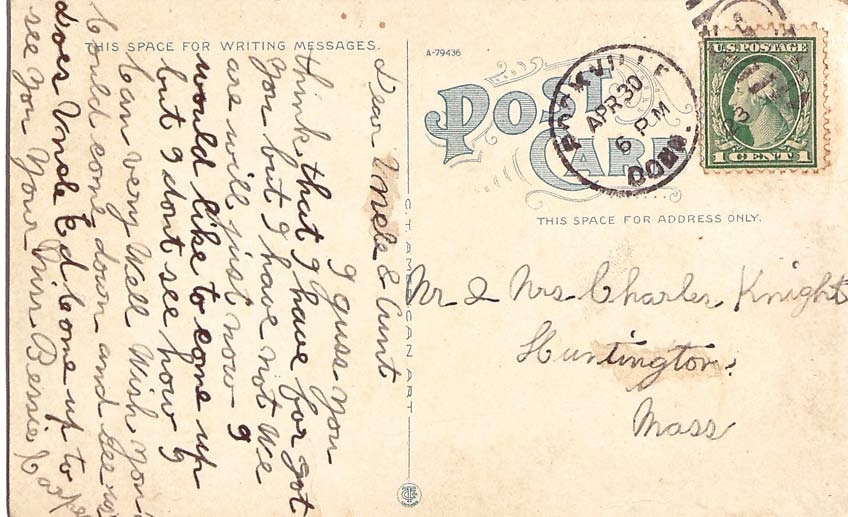 THIS SPACE FOR WRITING MESSAGES.
Dear Uncle & Aunt
I guss you
think that I have for got
you but I have not We
are will just now I
would like to come up
but I dont see how I
Can very Well Wish you
Could come down and see us
does Uncle Ed Come up to
see you Your Niss Bessie
C. T. AMERICAN ART
A-79436
POST CARD
ROCKVILLE
APR 30
6 PM
CONN.
23
U.S. POSTAGE
1 CENT 1
THIS SPACE FOR ADDRESS ONLY.
Mr & Mrs Charles Knight
Huntington
Mass